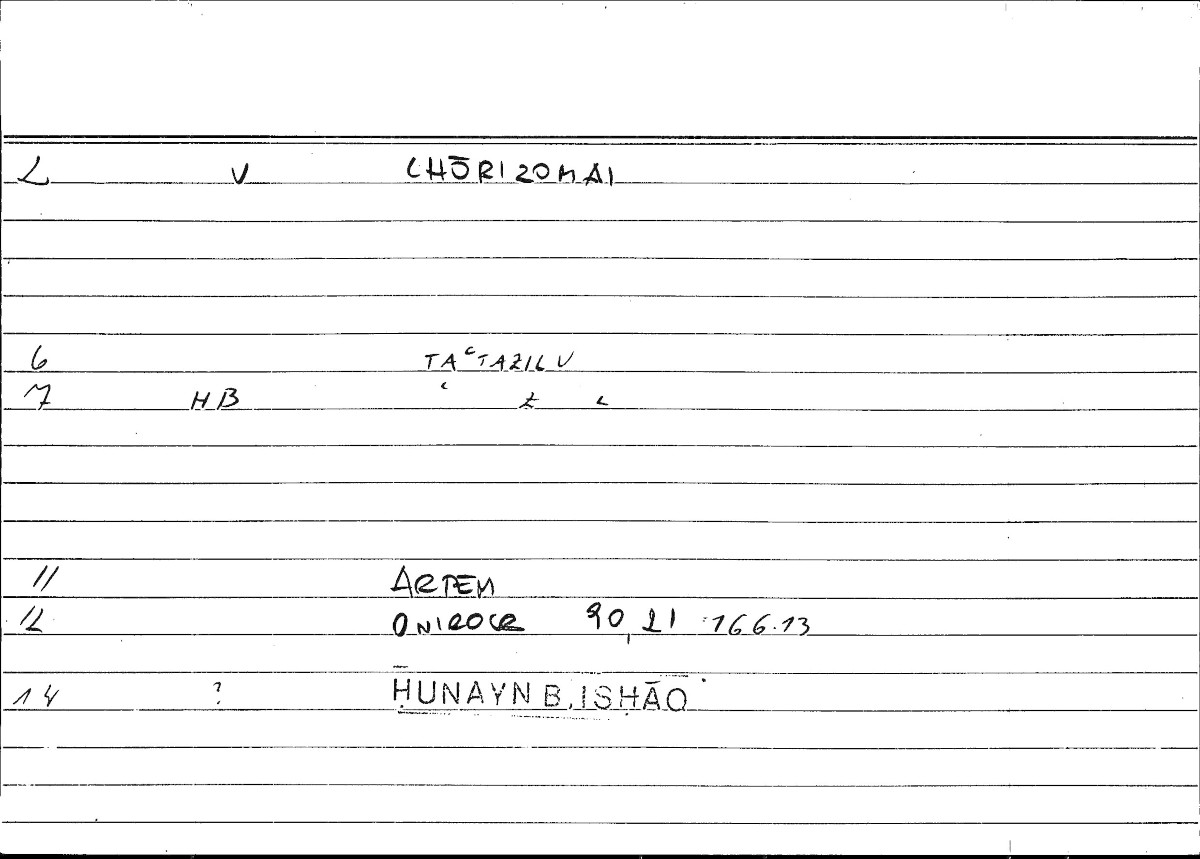 2 V CHŌRIZOMAI
6 TAʿTAZILU
7 HB ʿ z ʿ
11 ARTEM
12 ONIROCR 90,21 :166.13
14 ? ḤUNAYN B. ISḤĀQ